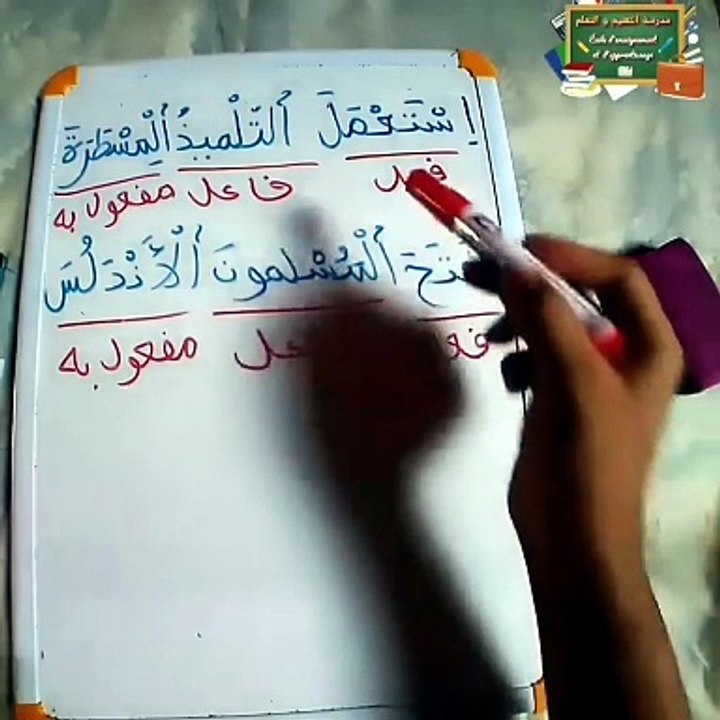 مدرسة التعليم و التعلم
Ecole d'enseignement
et d'apprentissage
اِسْتَعْمَلَ اُلتِّلْمِيذُ اُلْمِسْطَرَةَ
فعل فاعل مفعول به
اُلْمُسْلِمونَ اُلْأَنْدَلُسَ
مفعول به